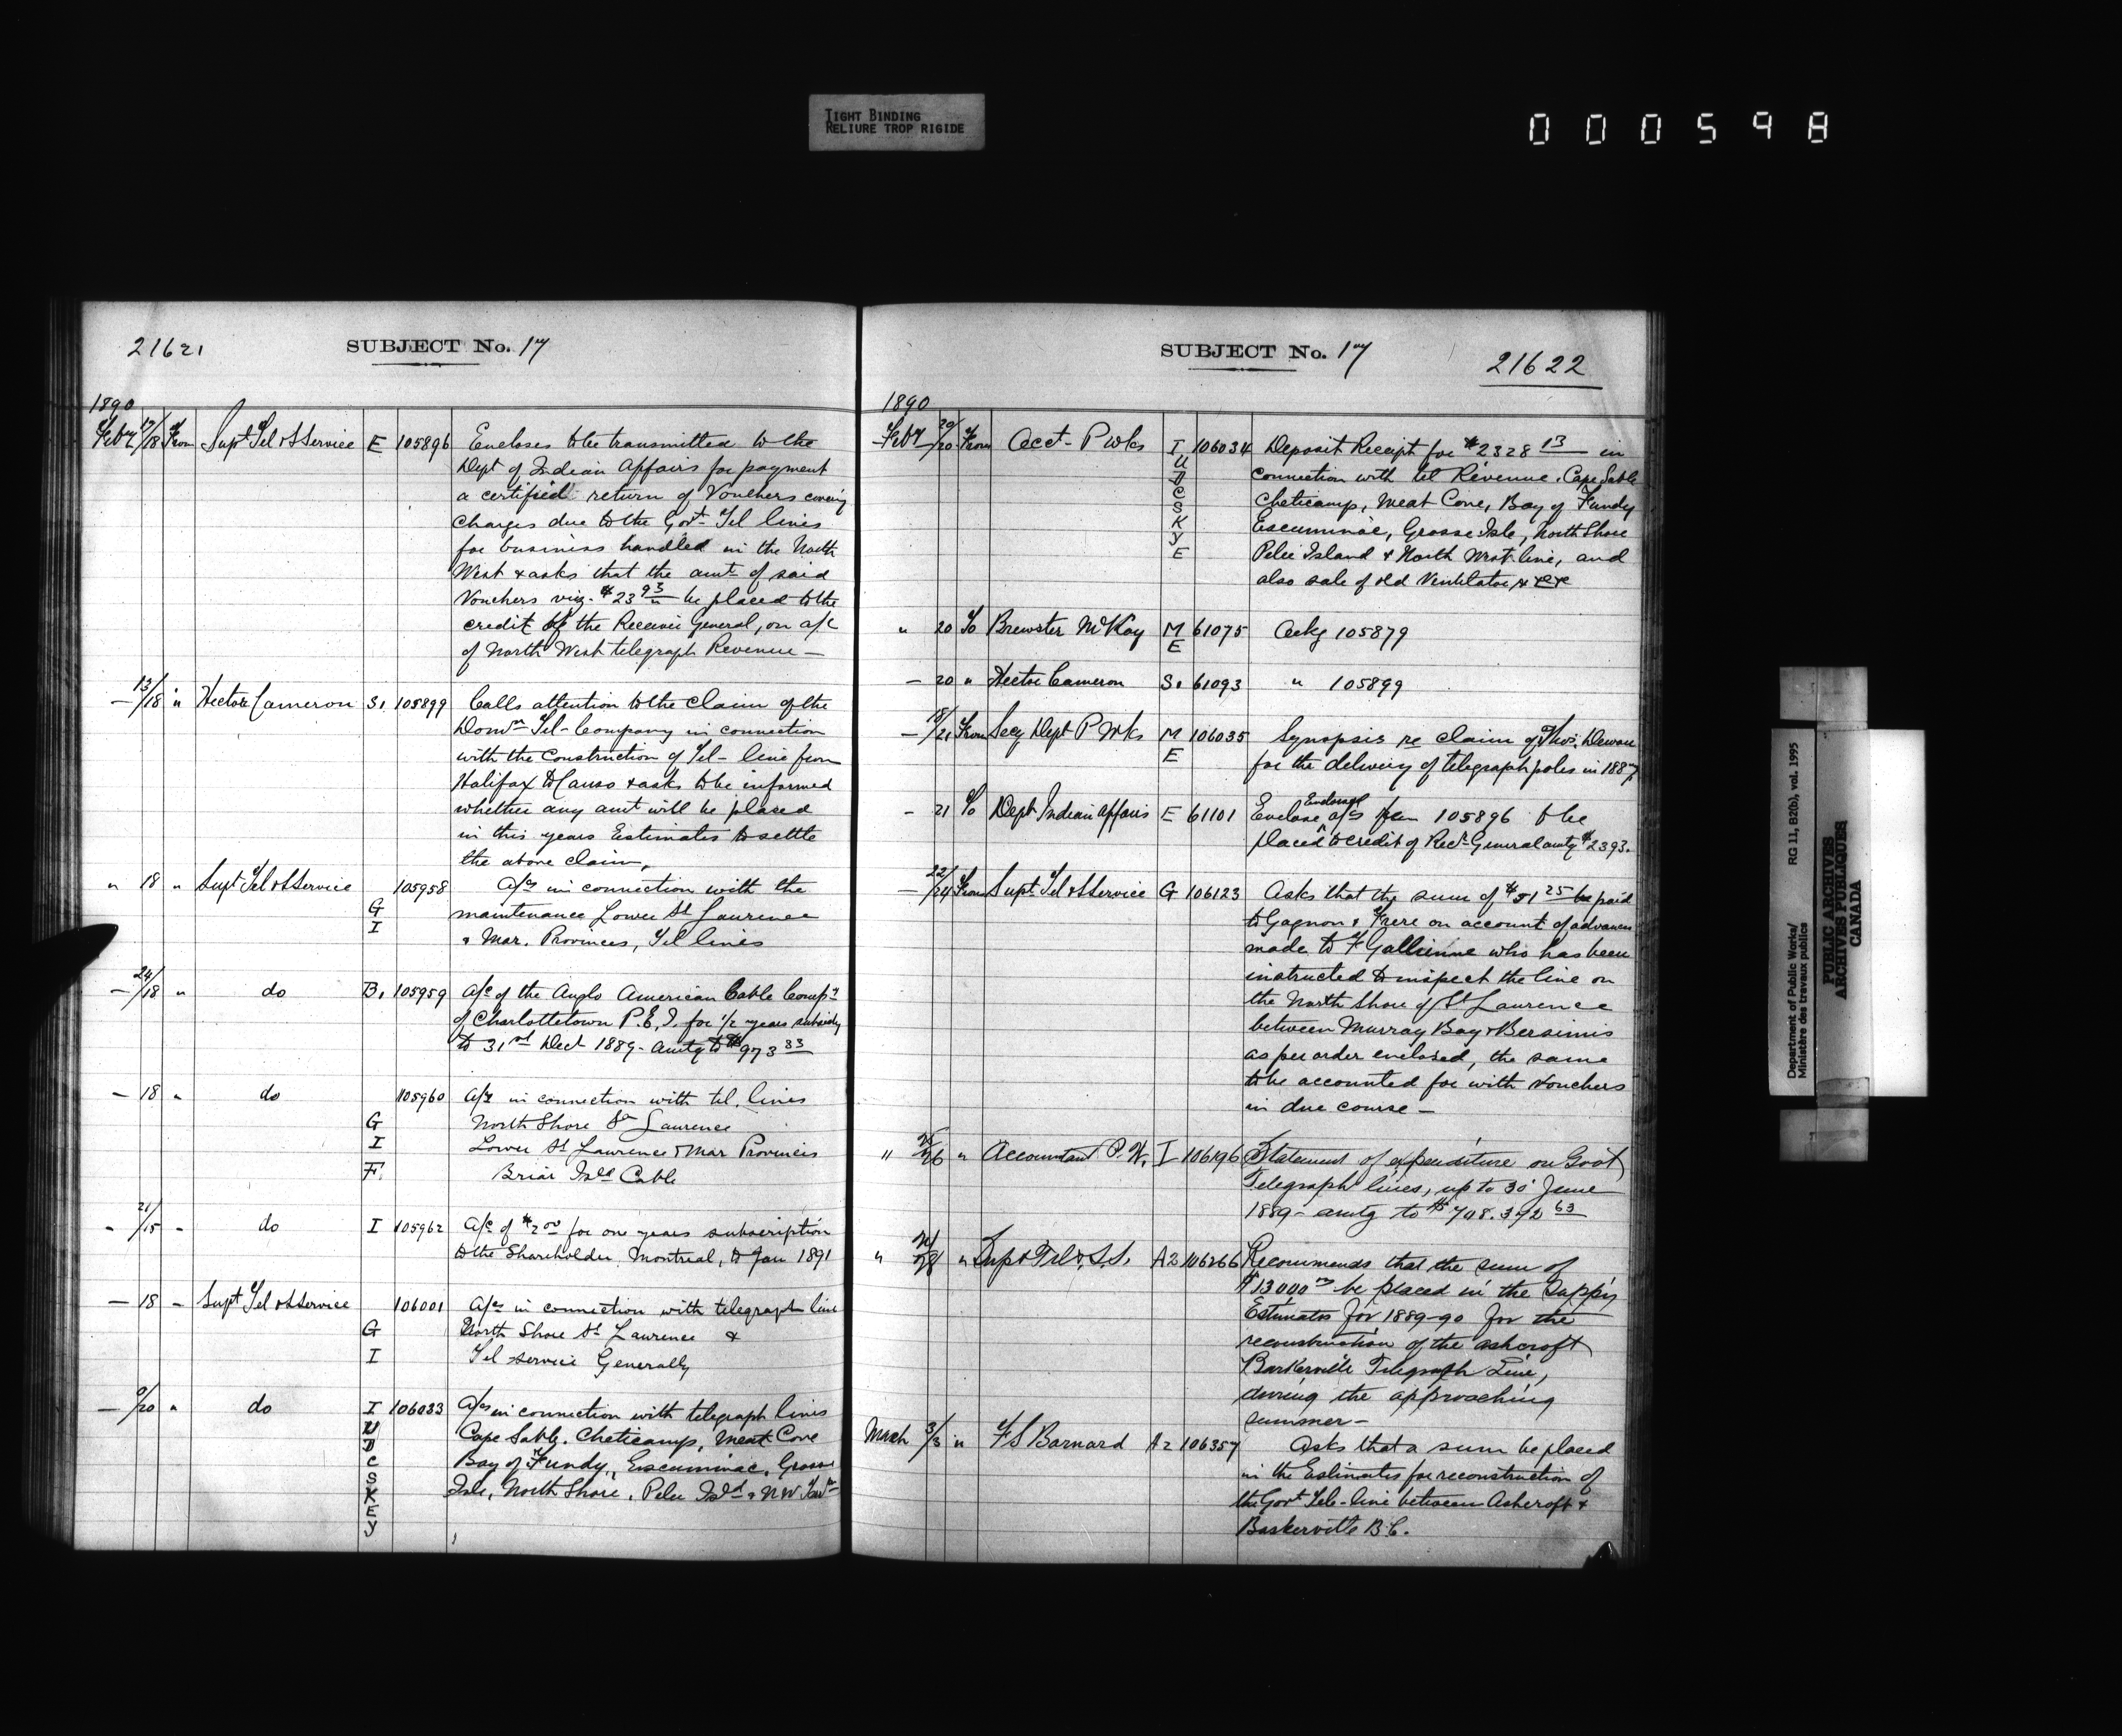 TIGHT BINDING
RELIURE TROP RIGIDE
000598
21621
SUBJECT No. 17
1890
Feby 17/18 From Supt Tel & S Service E 105896 Encloses to be transmitted to the
Dept of Indian Affairs for payment
a certified return of Vouchers covering
charges due to the Govt Tel lines
for business handled in the North
West & asks that the amt of said
Vouchers viz. $23 93 be placed to the
credit of the Receiver General, on a/c
of North West telegraph Revenue —
— 13/18 " Hector Cameron S. 105899 Calls attention to the claim of the
Domn Tel- Company in connection
with the Construction of Tel- line from
Halifax to Canso & asks to be informed
whether any amt will be placed
in this years Estimates to settle
the above claim.
" 18 " Supt Tel & S Service 105958 a/cs in connection with the
G maintenance Lower St Laurence
I & Mar. Provinces, Tel lines
— 24/18 " do B. 105959 a/c of the Anglo American Cable Compy
of Charlottetown P.E.I. for 1/2 years subsidy
to 31st Dect 1889- amtg to $973 33
— 18 " do 105960 a/cs in connection with tel. lines
G North Shore St Laurence
I Lower St Lawrence & Mar Provinces
F. Briar Isld Cable
" 21/15 - do I 105962 a/c of $2 00 for one years subscription
to the Shareholder, Montreal, to Jan 1891
— 18 - Supt Tel & S Service 106001 a/cs in connection with telegraph line
G North Shore St Lawrence &
I Tel service Generally
— 9/20 " do I 106033 a/cs in connection with telegraph lines
U Cape Sable. Cheticamp, Meat Cove
D
C Bay of Fundy, Escuminac, Grosse
S
K Isle, North Shore, Pelee Isld & NW
E
Y
SUBJECT No. 17
21622
1890
Feby 20/20 From Acct- P Wks I 106034 Deposit Receipt for $2328 13 in
U connection with tel Revenue. Cape Sable
D
C Cheticamp, Meat Cove, Bay of Fundy
S
K Escuminac, Grosse Isle, North Shore
Y
E Pelee Island & North West line, and
also sale of old Ventilator,
" 20 To Brewster McKay M 61075 Ackg 105879
E
— 20 " Hector Cameron S. 61093 " 105899
— 18/21 From Secy Dept P Wks M 106035 Synopsis re claim of Thos. Dewan
E for the delivery of telegraph poles in 1887
- 21 To Dept Indian Affairs E 61101 Enclose Endorsed a/cs from 105896 to be
placed to credit of Recr General amtg $23 93.
— 22/24 From Supt Tel & S Service G 106123 Asks that the sum of $51 25 be paid
to Gagnon & Frere on account of advances
made to F Gallienne who has been
instructed to inspect the line on
the North Shore of St Laurence
between Murray Bay & Bersimis
as per order enclosed, the same
to be accounted for with Vouchers
in due course —
" 25/26 " Accountant P. W. I 106196 Statement of expenditure on Govt
Telegraph lines, up to 30 June
1889- amtg to $708.392 63
" 28 " Supt Tel & S.S. A2 106266 Recommends that the sum of
$13000 be placed in the Suppy
Estimates for 1889-90 for the
reconstruction of the Ashcroft
Barkerville Telegraph Line,
during the approaching
summer—
March 3/3 " F S Barnard A2 106357 Asks that a sum be placed
in the Estimates for reconstruction of
the Govt Tele-line between Ashcroft &
Barkerville B.C.
Department of Public Works/
Ministère des travaux publics
RG 11, B2(b), vol. 1995
PUBLIC ARCHIVES
ARCHIVES PUBLIQUES
CANADA